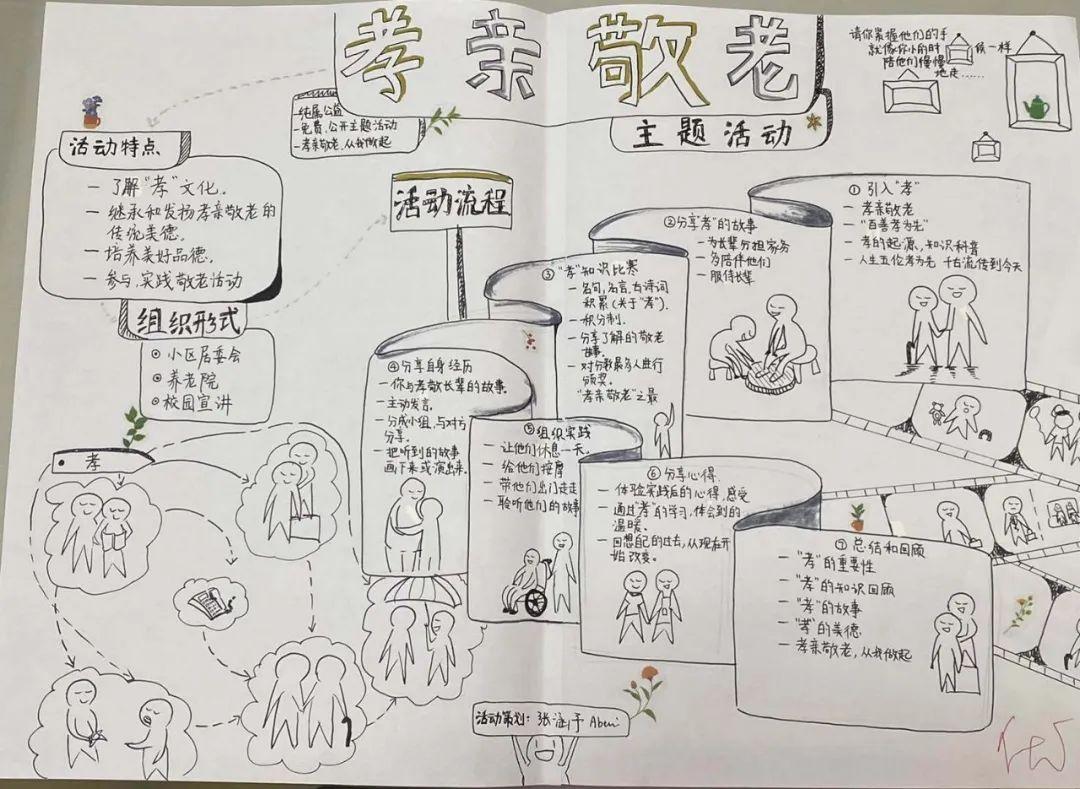 孝亲敬老
主题活动
-纯属公益
-免费、公开主题活动
-孝亲敬老,从我做起
请你紧握他们的手
就像你小的时候一样
陪他们慢慢
地走……
活动特点
一 了解“孝”文化。
一 继承和发扬孝亲敬老的
传统美德。
一 培养美好品德。
一 参与、实践敬老活动
组织形式
小区居委会
养老院
校园宣讲
孝
活动流程
① 引入“孝”
一 孝亲敬老
一 “百善孝为先”
一 孝的起源、知识科普
一 人生五伦孝为先 千古流传到今天
②分享“孝”的故事
一 为长辈分担家务
一 多陪伴他们
一 服侍长辈
③ “孝”知识比赛
一 名句,名言,古诗词
积累(关于“孝”).
一 积分制.
一 分享了解的敬老
故事.
一 对分数最多人进行
颁奖。
“孝亲敬老”之最
④分享自身经历
一 你与孝敬长辈的故事.
一 主动发言.
一 分成小组,与对方
分享.
一 把听到的故事
画下来或演出来.
⑤组织实践
一 让他们休息一天。
一 给他们按摩
一 带他们出门走走
一 聆听他们的故事
⑥ 分享心得.
一 体验实践后的心得、感受
一 通过“孝”的学习,体会到的
温暖。
一 回想自己的过去,从现在开
始改变。
⑦ 总结和回顾
一 “孝”的重要性
一 “孝”的知识回顾
一 “孝”的故事
一 “孝”的美德
一 孝亲敬老,从我做起
活动策划:张